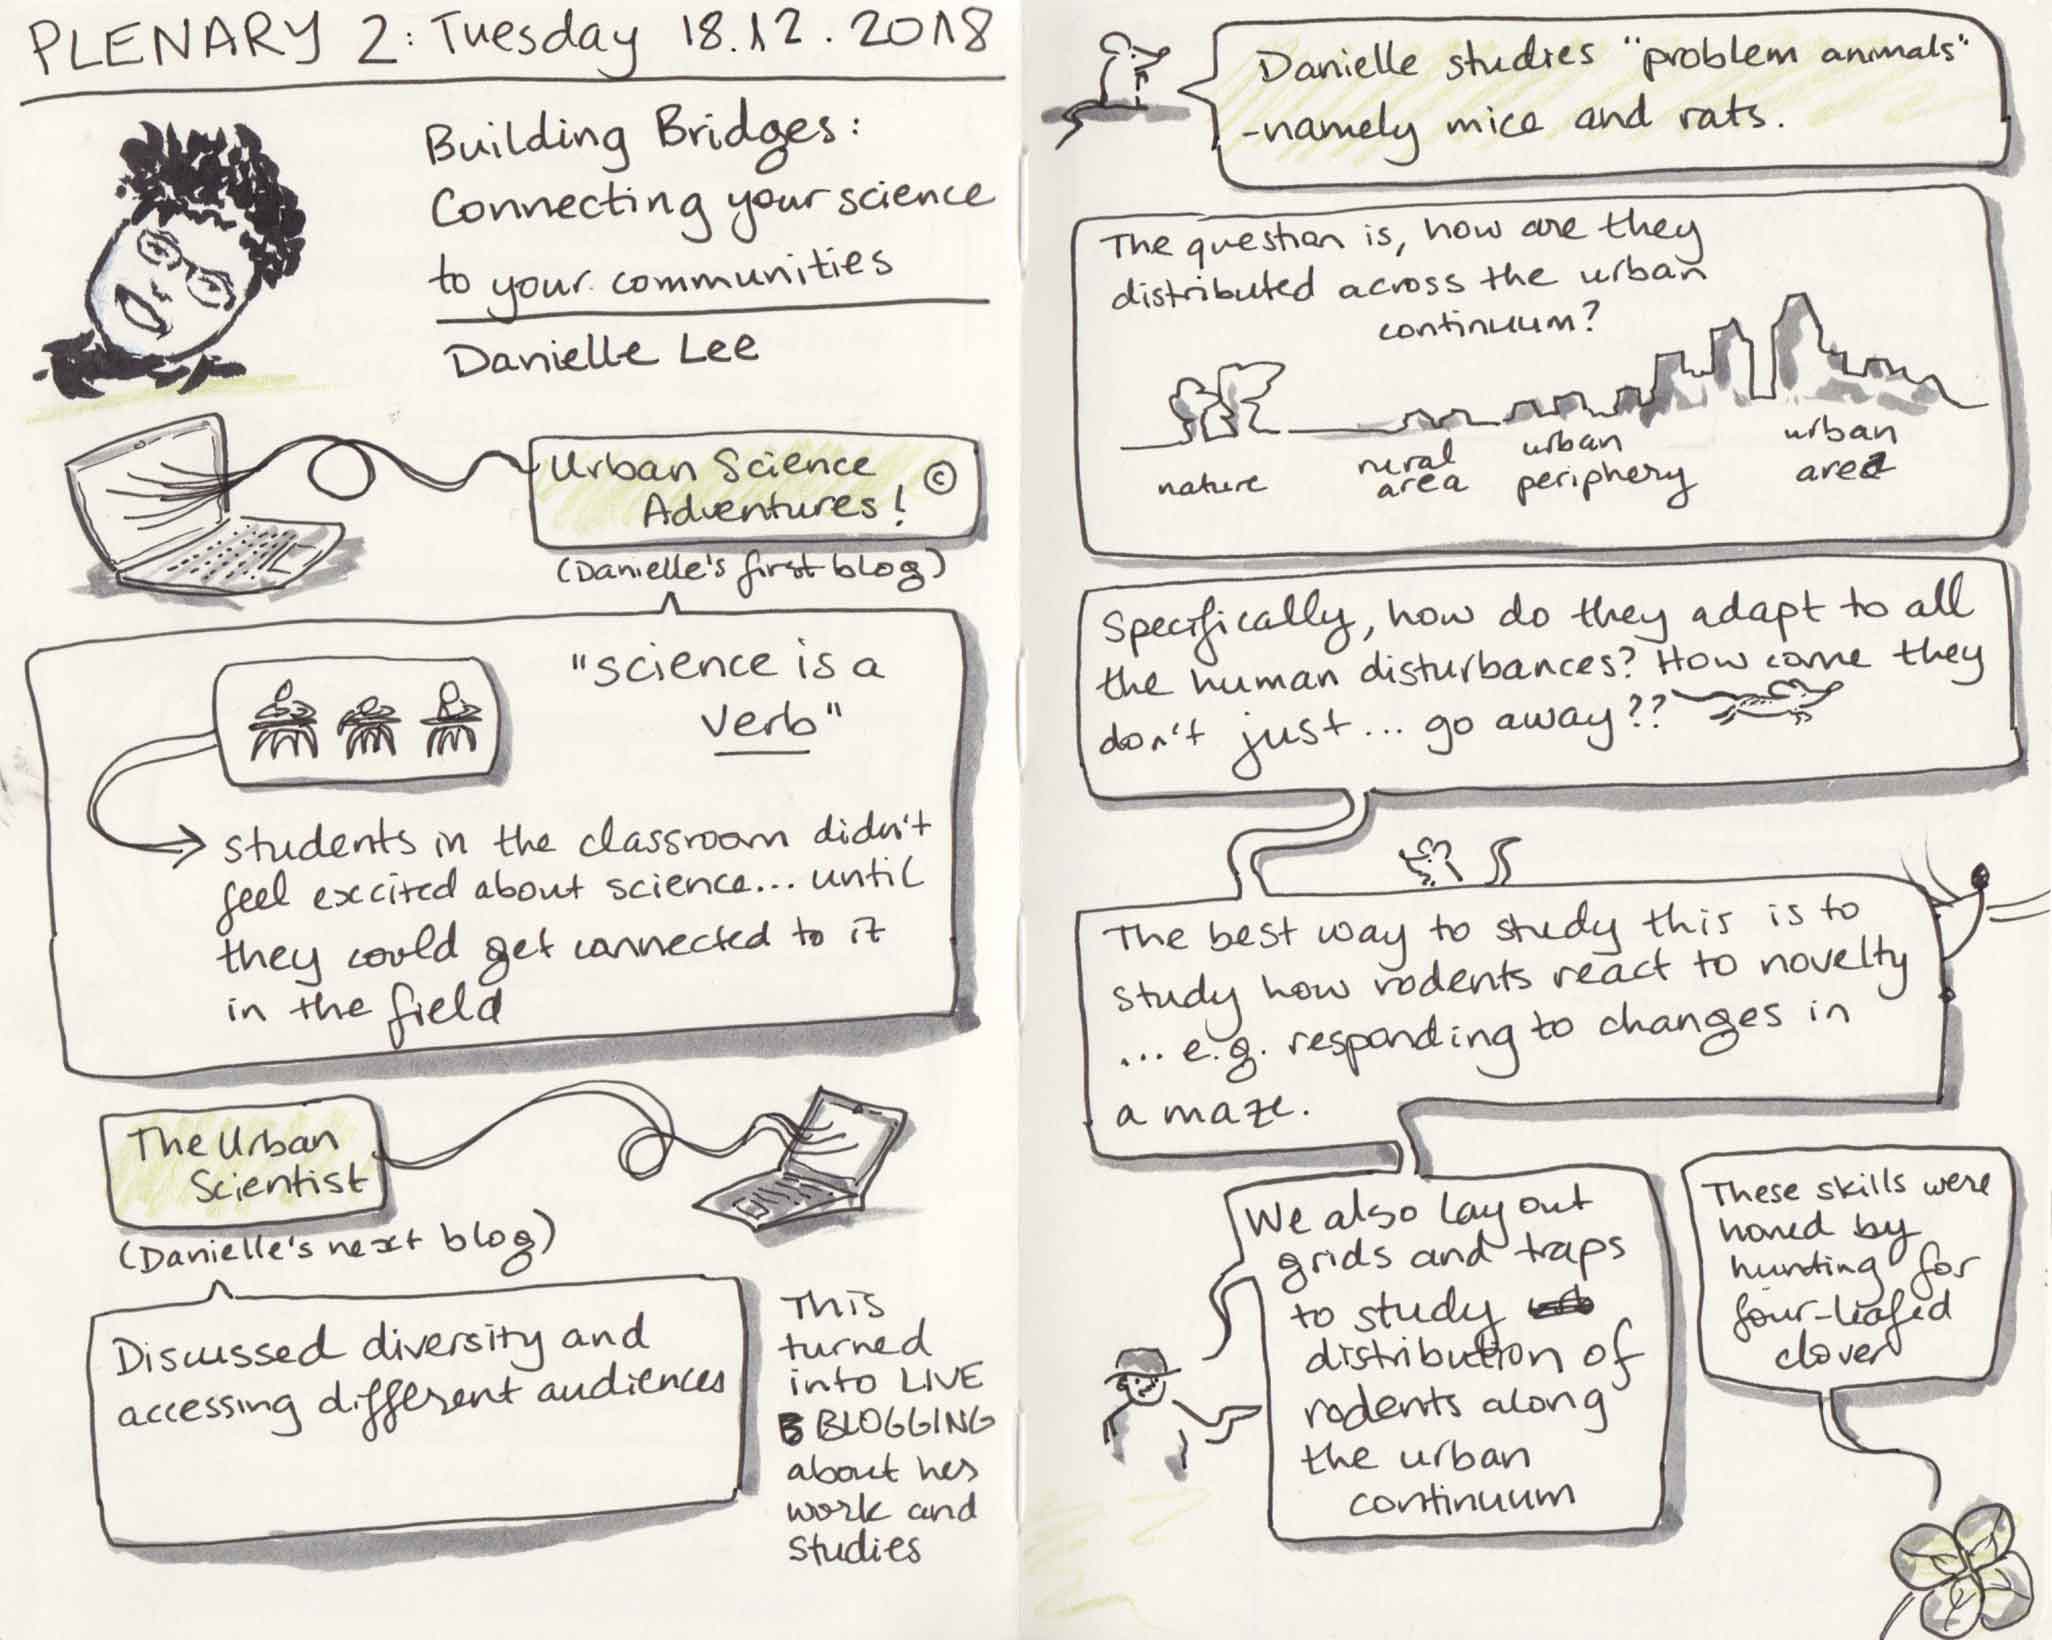 PLENARY 2: Tuesday 18.12.2018
Building Bridges:
Connecting your science
to your communities
Danielle Lee
Urban Science
Adventures! ©
(Danielle's first blog)
"science is a
verb"
students in the classroom didn't
feel excited about science... until
they could get connected to it
in the field
The Urban
Scientist
(Danielle's next blog)
Discussed diversity and
accessing different audiences
This
turned
into LIVE
B BLOGGING
about her
work and
studies
Danielle studies "problem animals"
-namely mice and rats.
The question is, how are they
distributed across the urban
continuum?
nature
rural
area
urban
periphery
urban
area
Specifically, how do they adapt to all
the human disturbances? How come they
don't just... go away??
The best way to study this is to
study how rodents react to novelty
... e.g. responding to changes in
a maze.
We also lay out
grids and traps
to study
distribution of
rodents along
the urban
continuum
These skills were
honed by
hunting for
four-leafed
clover